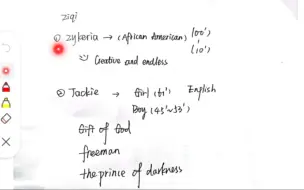 zsqi
① zykeria → (African American) (00')
(10')
Creative and endless
② Jackie → Girl (61') English
Boy (45'~53')
Gift of God
freeman
the prince of darkness